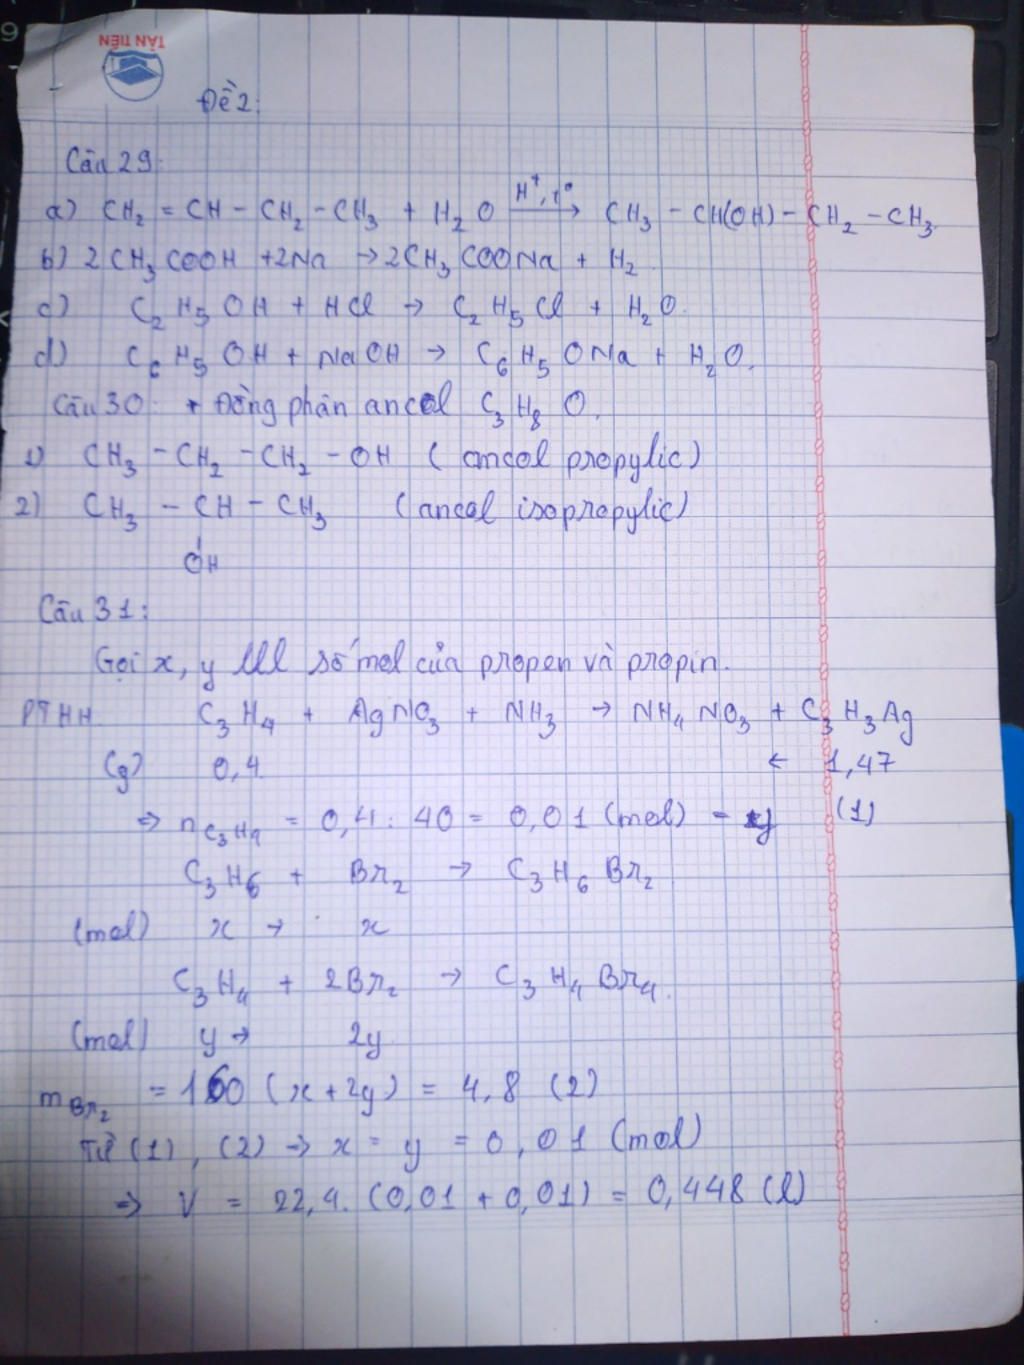 TÂN TIẾN
Đề 2:
Câu 29:
a) CH₂ = CH – CH₂ – CH₃ + H₂O —H⁺, t°→ CH₃ – CH(OH) – CH₂ – CH₃
b) 2CH₃COOH + 2Na → 2CH₃COONa + H₂
c) C₂H₅OH + HCl → C₂H₅Cl + H₂O.
d) C₆H₅OH + NaOH → C₆H₅ONa + H₂O.
Câu 30: * Đồng phân ancol C₃H₈O.
1) CH₃ – CH₂ – CH₂ – OH (ancol propylic)
2) CH₃ – CH – CH₃ (ancol isopropylic)
OH
Câu 31:
Gọi x, y lll số mol của propen và propin.
PTHH C₃H₄ + AgNO₃ + NH₃ → NH₄NO₃ + C₃H₃Ag
(g) 0,4 ← 1,47
⇒ nC₃H₄ = 0,4 : 40 = 0,01 (mol) = y (1)
C₃H₆ + Br₂ → C₃H₆Br₂
(mol) x → x
C₃H₄ + 2Br₂ → C₃H₄Br₄.
(mol) y → 2y
mBr₂ = 160 (x + 2y) = 4,8 (2)
Từ (1), (2) → x = y = 0,01 (mol)
⇒ V = 22,4. (0,01 + 0,01) = 0,448 (l)